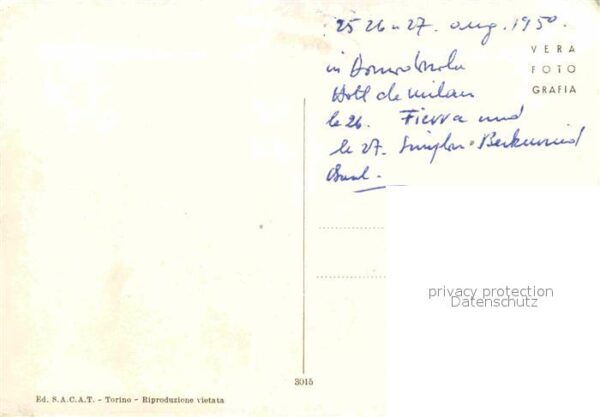 25 26 u 27. aug. 1950.
in Domodossola
Hotl de milan
le 26. Fierra und
le 27. Simplon - Beckenried
Basel.
VERA
FOTO
GRAFIA
privacy protection
Datenschutz
3015
Ed. S.A.C.A.T. - Torino - Riproduzione vietata